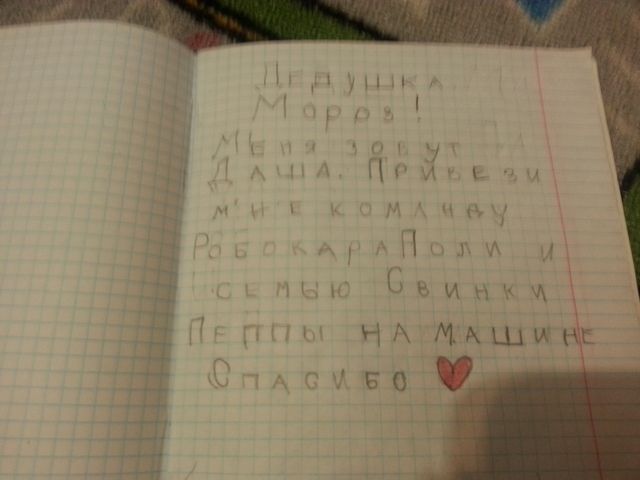 Дедушка
Мороз!
Меня зовут
Даша. Привези
мне команду
РобокараПоли и
семью Свинки
Пеппы на машине
Спасибо